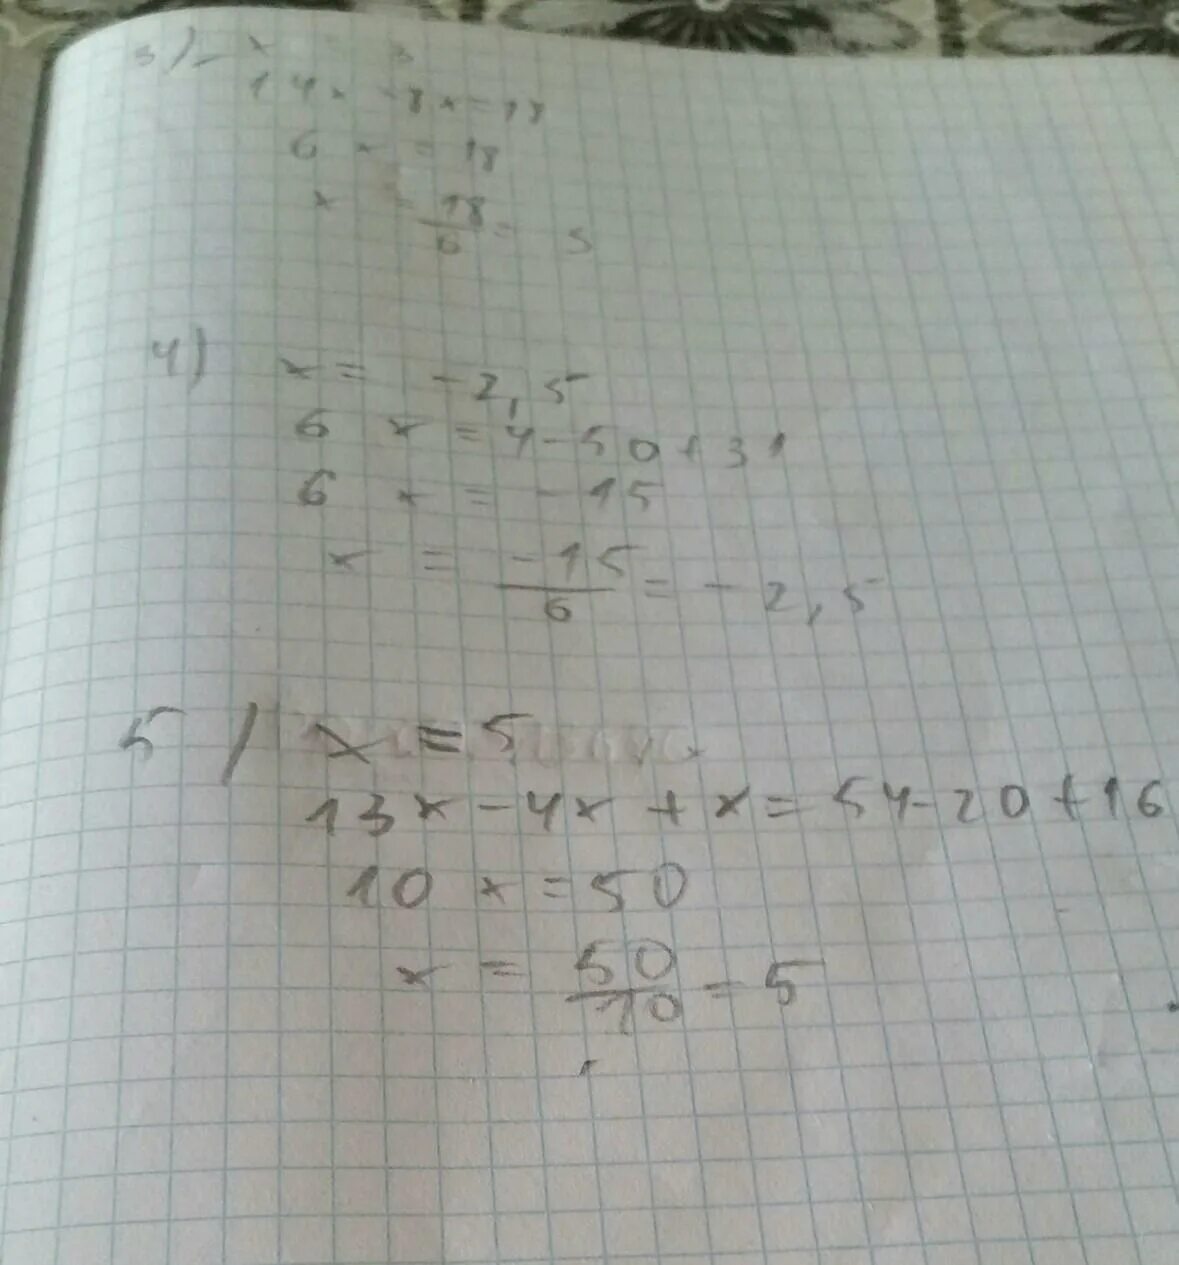 3) x 3
14x - 8x = 18
6 x = 18
x = 18/6 = 3
4) x = -2,5
6 x = 4 - 50 + 31
6 x = -15
x = -15/6 = -2,5
5) x = 5
13x - 4x + x = 54 - 20 + 16
10 x = 50
x = 50/10 = 5